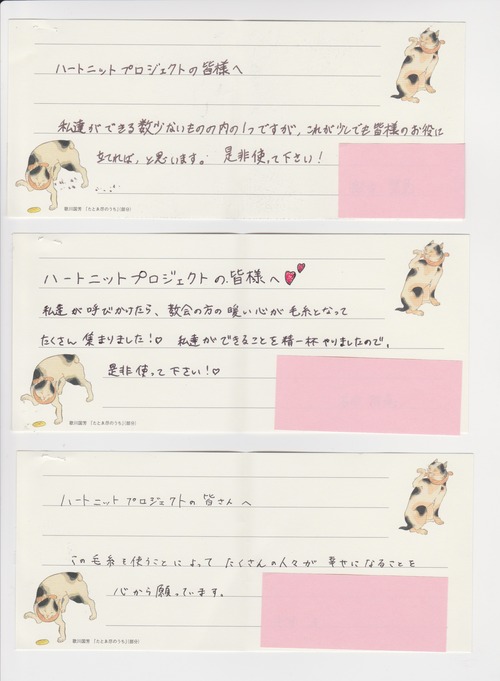 ハートニットプロジェクトの皆様へ
私達ができる数少ないものの内の1つですが、これが少しでも皆様のお役に
立てれば、と思います。 是非使って下さい!
歌川国芳 「たとゑ尽のうち」(部分)
ハートニットプロジェクトの皆様へ
私達が呼びかけたら、教会の方の暖い心が毛糸となって
たくさん集まりました!♡ 私達ができることを精一杯やりましたので、
是非使って下さい!♡
歌川国芳 「たとゑ尽のうち」(部分)
ハートニットプロジェクトの皆さんへ
この毛糸を使うことによってたくさんの人々が幸せになることを
心から願っています。
歌川国芳 「たとゑ尽のうち」(部分)